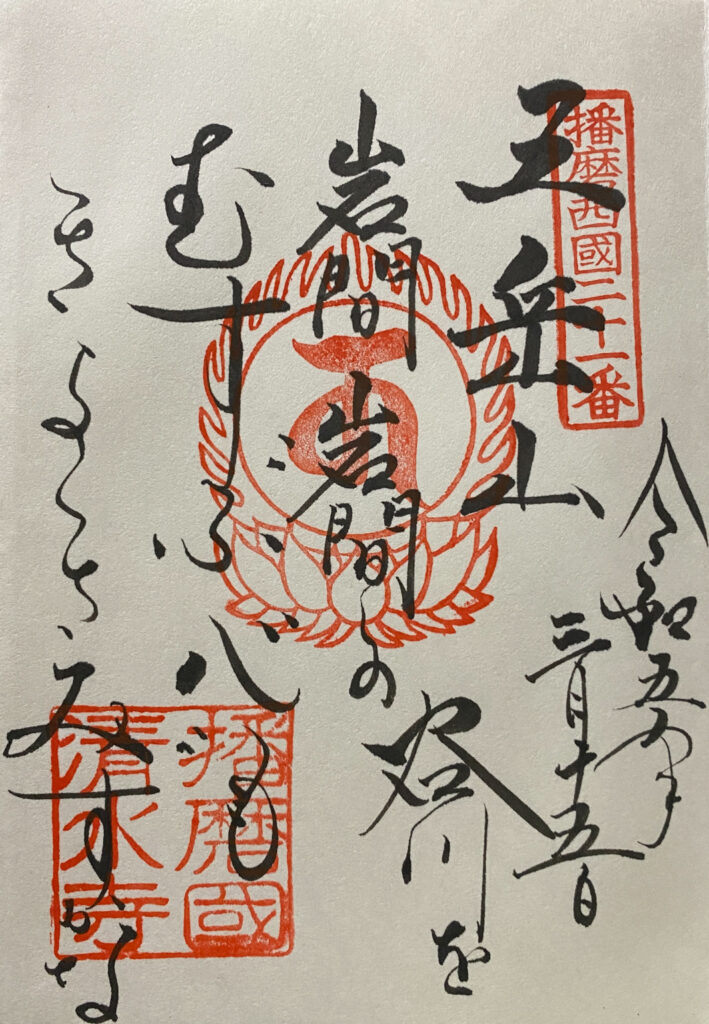 播磨西國二十一番
王岳山
令和五年
三月十五日
岩間岩間の谷川を
むすぶ心も
きよ すかな
播磨國
清水寺